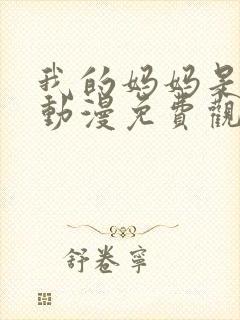 我的妈妈是
動漫免費觀
舒卷寧